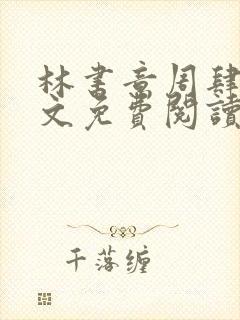 林書音周肆
文免費閱讀
千落缠